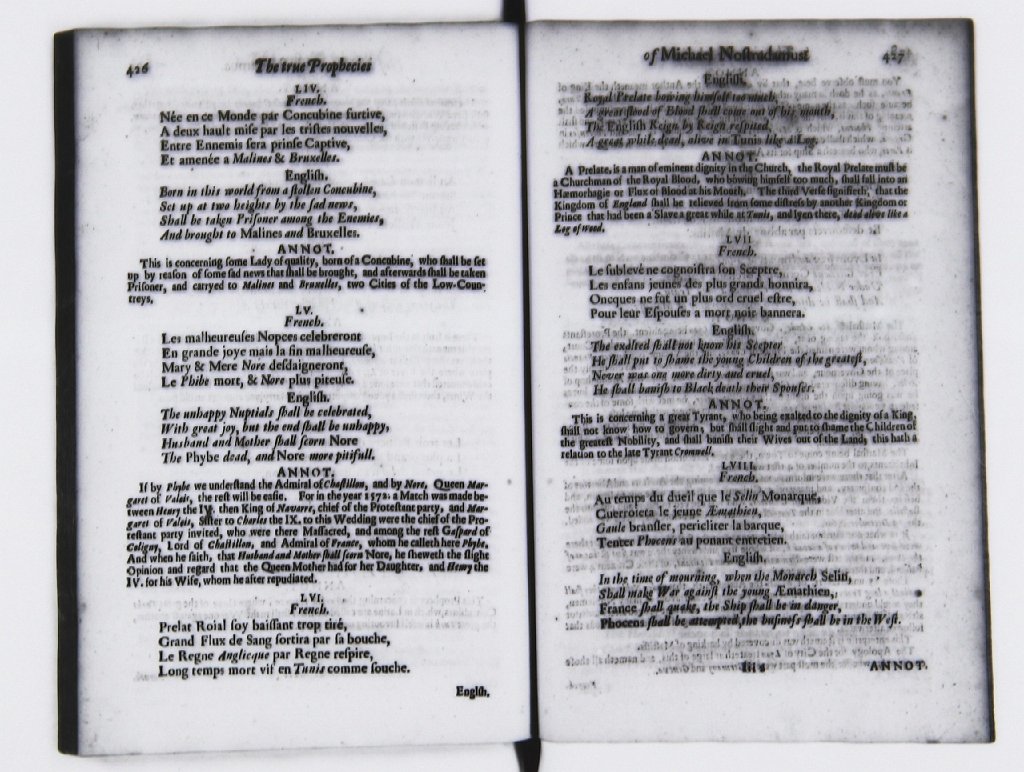 426 The true Prophecies
LIV.
French.
Née en ce Monde par Concubine furtive,
A deux hault mise par les tristes nouvelles,
Entre Ennemis sera prinse Captive,
Et amenée a Malines & Bruxelles.
English.
Born in this world from a stollen Concubine,
Set up at two heights by the sad news,
Shall be taken Prisoner among the Enemies,
And brought to Malines and Bruxelles.
ANNOT.
This is concerning some Lady of quality, born of a Concubine, who shall be set
up by reason of some sad news that shall be brought, and afterwards shall be taken
Prisoner, and carryed to Malines and Bruxelles, two Cities of the Low-Coun-
treys.
LV.
French.
Les malheureuses Nopces celebreront
En grande joye mais la fin malheureuse,
Mary & Mere Nore desdaigneront,
Le Phibe mort, & Nore plus piteuse.
English.
The unhappy Nuptials shall be celebrated,
With great joy, but the end shall be unhappy,
Husband and Mother shall scorn Nore
The Phybe dead, and Nore more pitifull.
ANNOT.
If by Phybe we understand the Admiral of Chastillon, and by Nore, Queen Mar-
garet of Valois, the rest will be easie. For in the year 1572. a Match was made be-
tween Henry the IV. then King of Navarre, chief of the Protestant party, and Mar-
garet of Valois, Sister to Charles the IX. to this Wedding were the chief of the Pro-
testant party invited, who were there Massacred, and among the rest Gaspard of
Coligny, Lord of Chastillon, and Admiral of France, whom he calleth here Phybe.
And when he saith, that Husband and Mother shall scorn Nore, he sheweth the slight
Opinion and regard that the Queen Mother had for her Daughter, and Henry the
IV. for his Wife, whom he after repudiated.
LVI.
French.
Prelat Roial soy baissant trop tiré,
Grand Flux de Sang sortira par sa bouche,
Le Regne Anglicque par Regne respire,
Long temps mort vif en Tunis comme souche.
English,
of Michael Nostradamus. 427
English.
Royal Prelate bowing himself too much,
A great flood of Blood shall come out of his mouth,
The English Reign by Reign respited,
A great while dead, alive in Tunis like a Log.
ANNOT.
A Prelate, is a man of eminent dignity in the Church, the Royal Prelate must be
a Churchman of the Royal Blood, who bowing himself too much, shall fall into an
Hæmorhagie or Flux of Blood at his Mouth. The third Verse signifieth, that the
Kingdom of England shall be relieved from some distress by another Kingdom or
Prince that had been a Slave a great while at Tunis, and lyen there, dead alive like a
Log of wood.
LVII
French.
Le sublevé ne cognoistra son Sceptre,
Les enfans jeunes des plus grands honnira,
Oncques ne fut un plus ord cruel estre,
Pour leur Espouses a mort noir bannera.
English.
The exalted shall not know his Scepter
He shall put to shame the young Children of the greatest,
Never was one more dirty and cruel,
He shall banish to Black death their Spouses.
ANNOT.
This is concerning a great Tyrant, who being exalted to the dignity of a King,
shall not know how to govern; but shall slight and put to shame the Children of
the greatest Nobility, and shall banish their Wives out of the Land, this hath a
relation to the late Tyrant Cromwell.
LVIII.
French.
Au temps du dueil que le Selin Monarque,
Guerroieta le jeune Æmathien,
Gaule bransler, pericliter la barque,
Tenter Phocens au ponant entretien.
English.
In the time of mourning, when the Monarch Selin,
Shall make War against the young Æmathien,
France shall quake, the Ship shall be in danger,
Phocens shall be attempted, the business shall be in the West.
ANNOT.